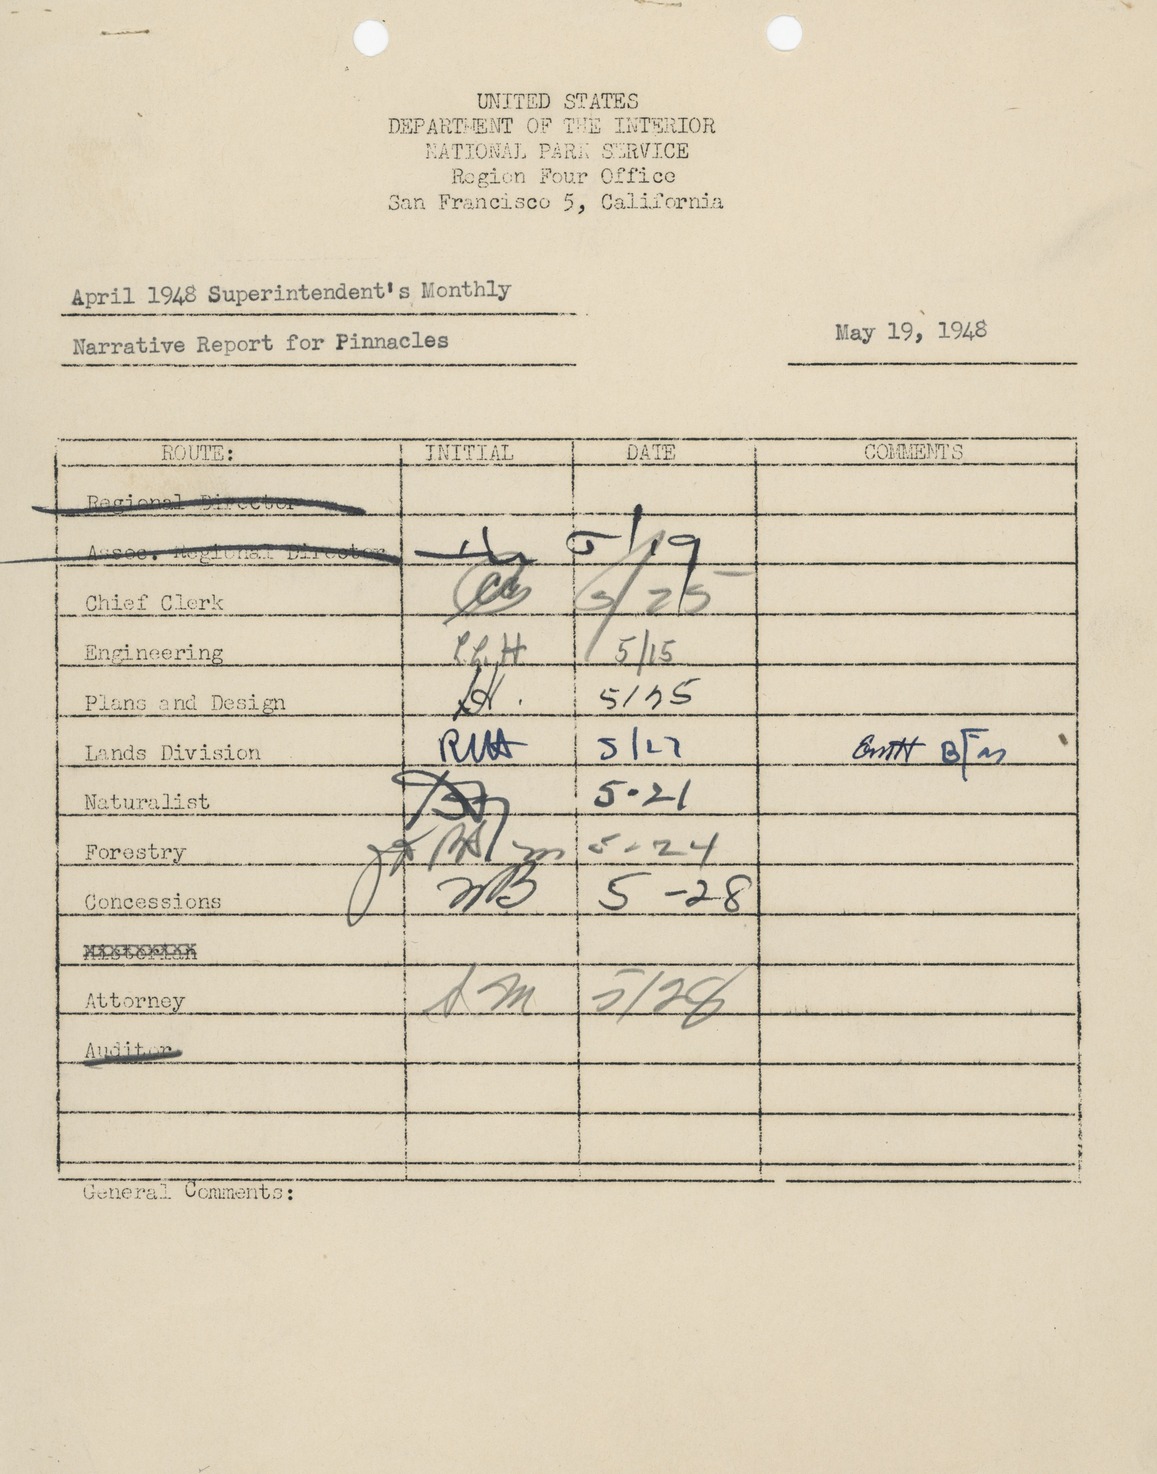 UNITED STATES
DEPARTMENT OF THE INTERIOR
NATIONAL PARK SERVICE
Region Four Office
San Francisco 5, California
April 1948 Superintendent's Monthly
Narrative Report for Pinnacles
May 19, 1948
ROUTE: INITIAL DATE COMMENTS
Regional Director
Assoc. Regional Director 5/19
Chief Clerk 5/25
Engineering 5/15
Plans and Design 5/25
Lands Division 5/27
Naturalist 5-21
Forestry 5-24
Concessions 5-28
Attorney 5/28
Auditor
General Comments: